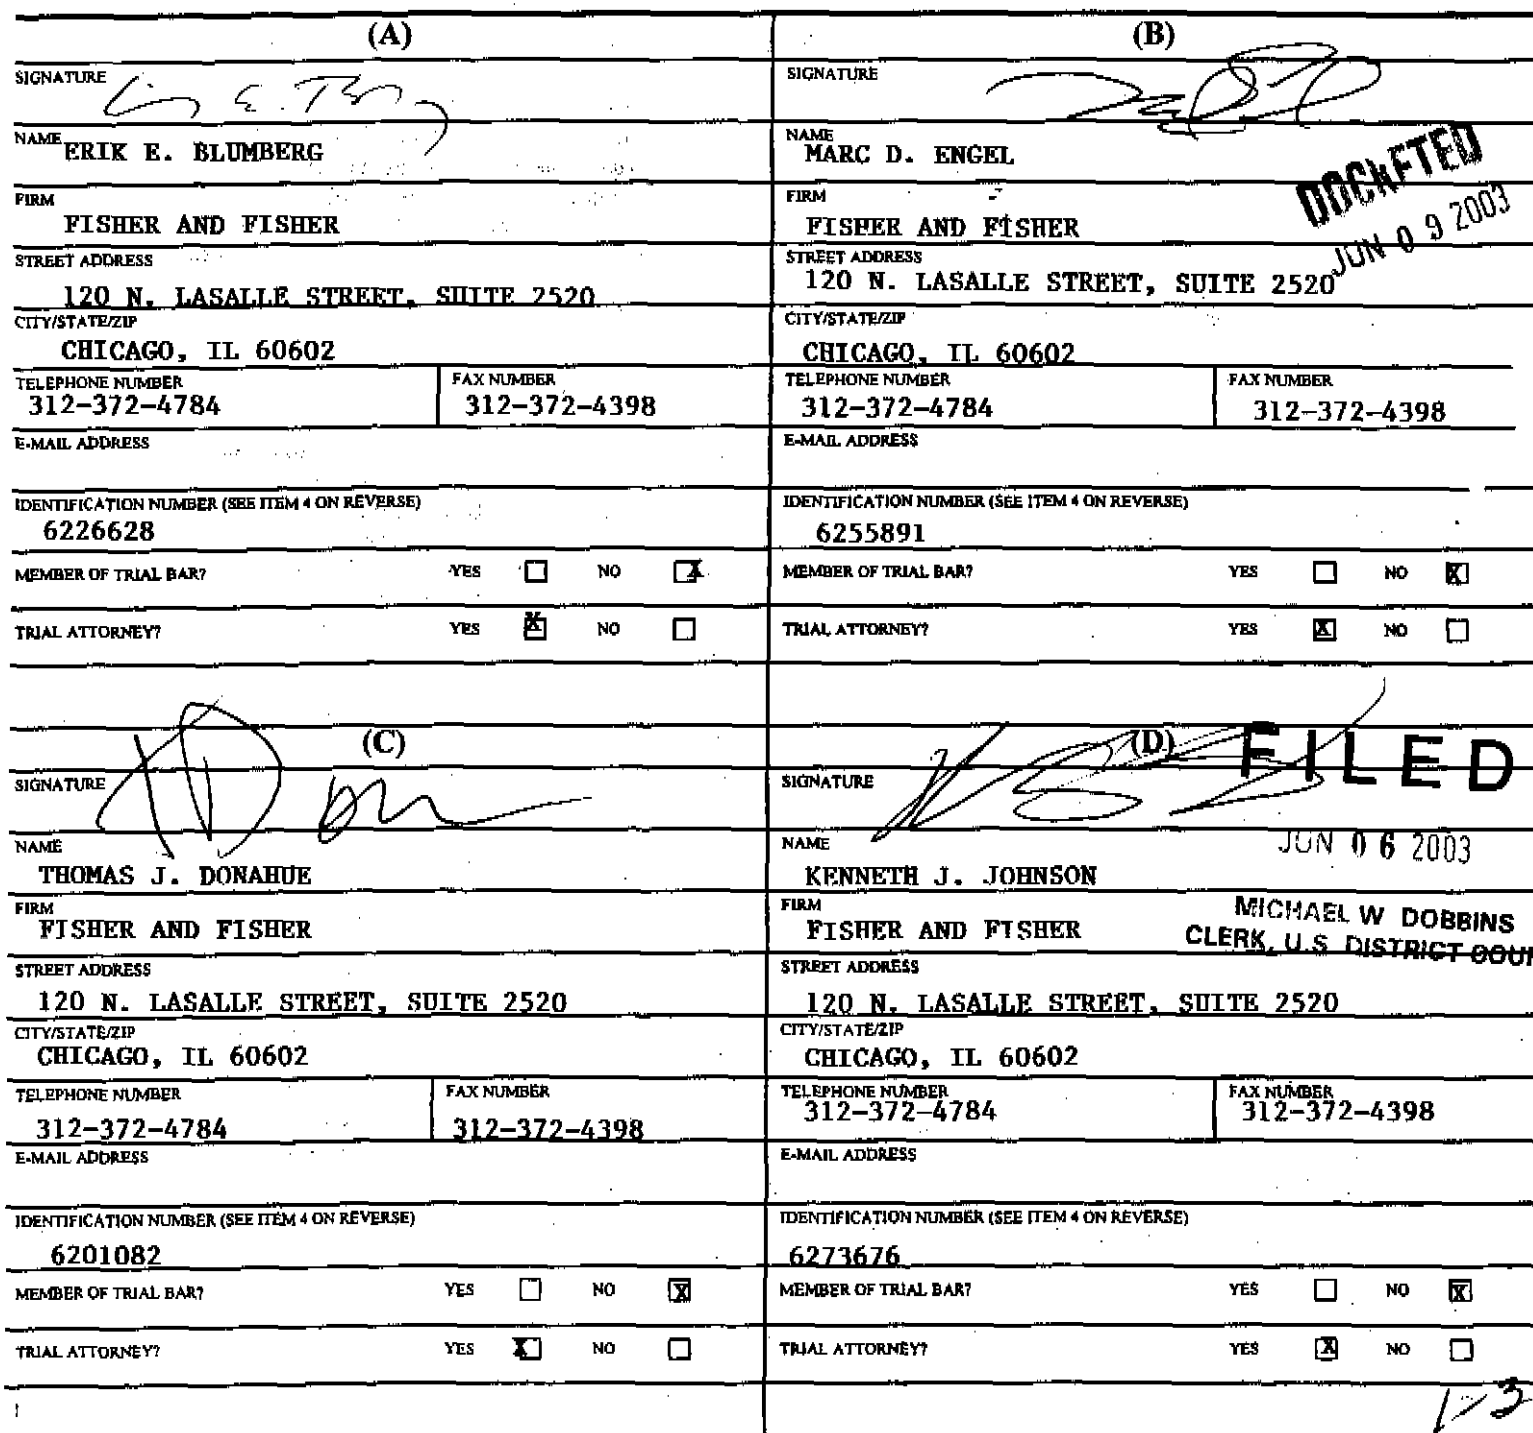 (A)
SIGNATURE
NAME ERIK E. BLUMBERG
FIRM
FISHER AND FISHER
STREET ADDRESS
120 N. LASALLE STREET, SUITE 2520
CITY/STATE/ZIP
CHICAGO, IL 60602
TELEPHONE NUMBER FAX NUMBER
312-372-4784 312-372-4398
E-MAIL ADDRESS
IDENTIFICATION NUMBER (SEE ITEM 4 ON REVERSE)
6226628
MEMBER OF TRIAL BAR? YES NO X
TRIAL ATTORNEY? YES X NO
(B)
SIGNATURE
NAME
MARC D. ENGEL
DOCKETED
JUN 09 2003
FIRM
FISHER AND FISHER
STREET ADDRESS
120 N. LASALLE STREET, SUITE 2520
CITY/STATE/ZIP
CHICAGO, IL 60602
TELEPHONE NUMBER FAX NUMBER
312-372-4784 312-372-4398
E-MAIL ADDRESS
IDENTIFICATION NUMBER (SEE ITEM 4 ON REVERSE)
6255891
MEMBER OF TRIAL BAR? YES NO X
TRIAL ATTORNEY? YES X NO
(C)
SIGNATURE
NAME
THOMAS J. DONAHUE
FIRM
FISHER AND FISHER
STREET ADDRESS
120 N. LASALLE STREET, SUITE 2520
CITY/STATE/ZIP
CHICAGO, IL 60602
TELEPHONE NUMBER FAX NUMBER
312-372-4784 312-372-4398
E-MAIL ADDRESS
IDENTIFICATION NUMBER (SEE ITEM 4 ON REVERSE)
6201082
MEMBER OF TRIAL BAR? YES NO X
TRIAL ATTORNEY? YES X NO
(D)
FILED
SIGNATURE
JUN 06 2003
NAME
KENNETH J. JOHNSON
MICHAEL W DOBBINS
CLERK, U.S DISTRICT COUR
FIRM
FISHER AND FISHER
STREET ADDRESS
120 N. LASALLE STREET, SUITE 2520
CITY/STATE/ZIP
CHICAGO, IL 60602
TELEPHONE NUMBER FAX NUMBER
312-372-4784 312-372-4398
E-MAIL ADDRESS
IDENTIFICATION NUMBER (SEE ITEM 4 ON REVERSE)
6273676
MEMBER OF TRIAL BAR? YES NO X
TRIAL ATTORNEY? YES X NO
1-3